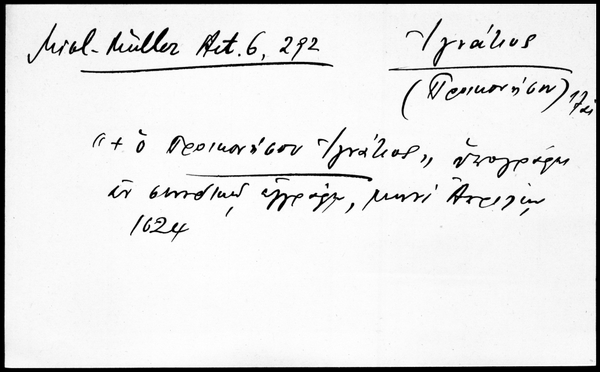 Mikl-Müller Act. 6, 292
Ἰγνάτιος
(Προικονήσου)
"+ ὁ Προικονήσου Ἰγνάτιος„ ὑπογράφει
ἐν συνοδικῷ ἐγγράφῳ, μηνὶ Ἀπριλίῳ
1624